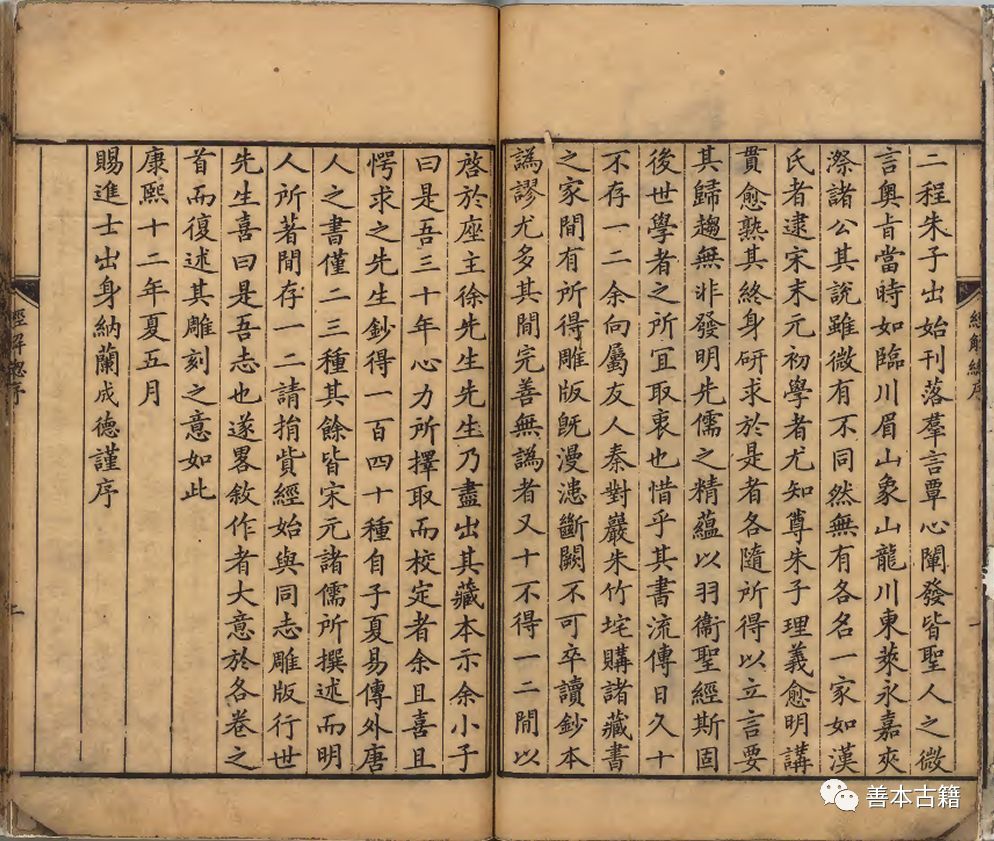 二程朱子出始刊落羣言覃心闡發皆聖人之微
言奧旨當時如臨川眉山象山龍川東萊永嘉夾
漈諸公其說雖微有不同然無有各名一家如漢
氏者逮宋末元初學者尤知尊朱子理義愈明講
貫愈熟其終身研求於是者各隨所得以立言要
其歸趨無非發明先儒之精蘊以羽衞聖經斯固
後世學者之所宜取衷也惜乎其書流傳日久十
不存一二余向屬友人秦對巖朱竹垞購諸藏書
之家間有所得雕版旣漫漶斷闕不可卒讀鈔本
譌謬尤多其間完善無譌者又十不得一二間以
啓於座主徐先生先生乃盡出其藏本示余小子
曰是吾三十年心力所擇取而校定者余且喜且
愕求之先生鈔得一百四十種自子夏易傳外唐
人之書僅二三種其餘皆宋元諸儒所撰述而明
人所著間存一二請捐貲經始與同志雕版行世
先生喜曰是吾志也遂畧敘作者大意於各卷之
首而復述其雕刻之意如此
康熙十二年夏五月
賜進士出身納蘭成德謹序
經解總序
二
經解總序
善本古籍